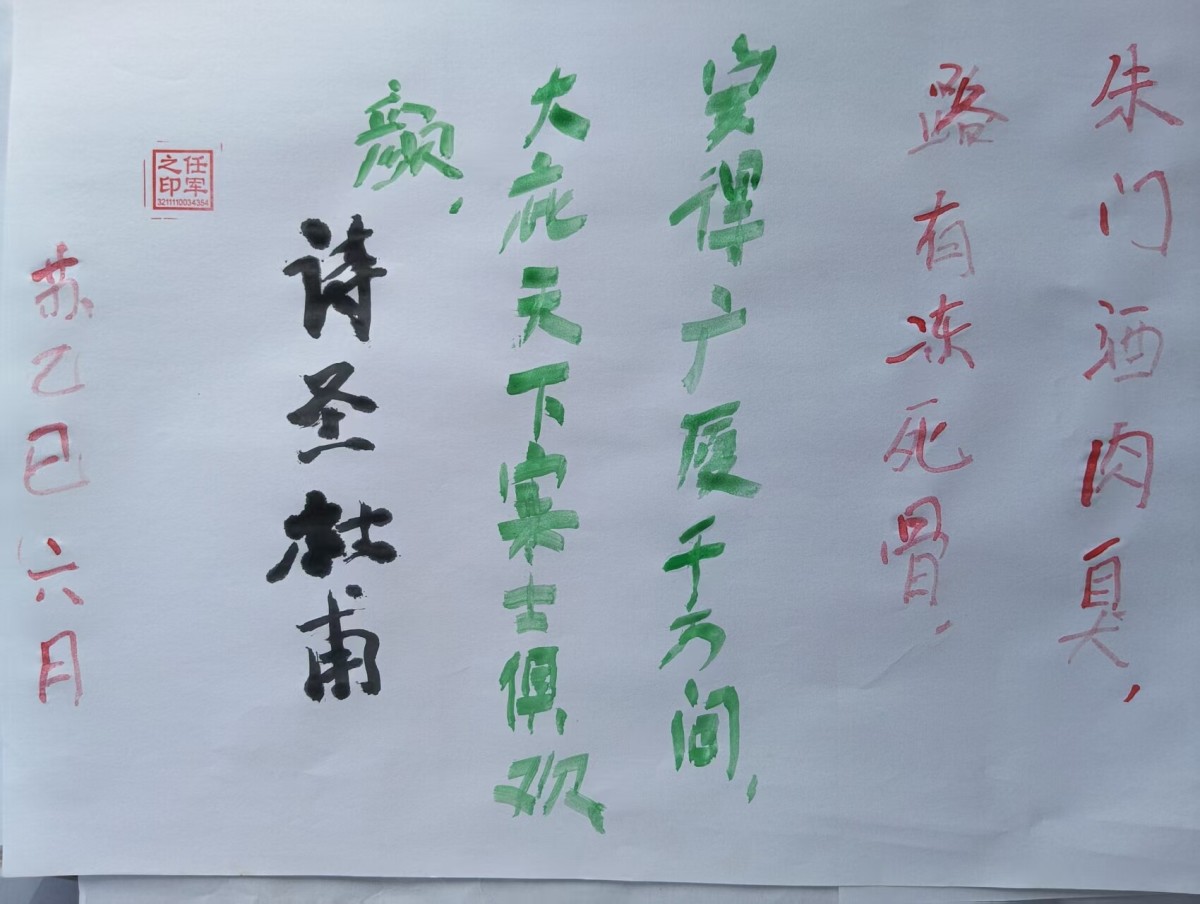 朱门酒肉臭，
路有冻死骨，
安得广厦千万间，
大庇天下寒士俱欢
颜，
诗圣杜甫
任军
之印
3211110034354
苏乙巳六月